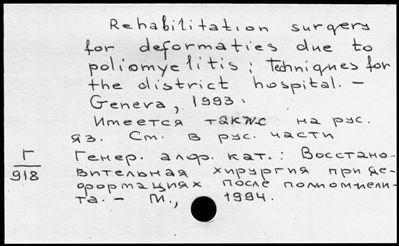 Rehabilitation surgery
for deformaties due to
poliomyelitis: Techniques for
the district hospital. –
Geneva, 1993.
Имеется также на рус.
яз. См. в рус. части
Генер. алф. кат.: Восстано-
вительная хирургия при де-
формациях после полиомиели-
та. – М., 1994.
Г
918